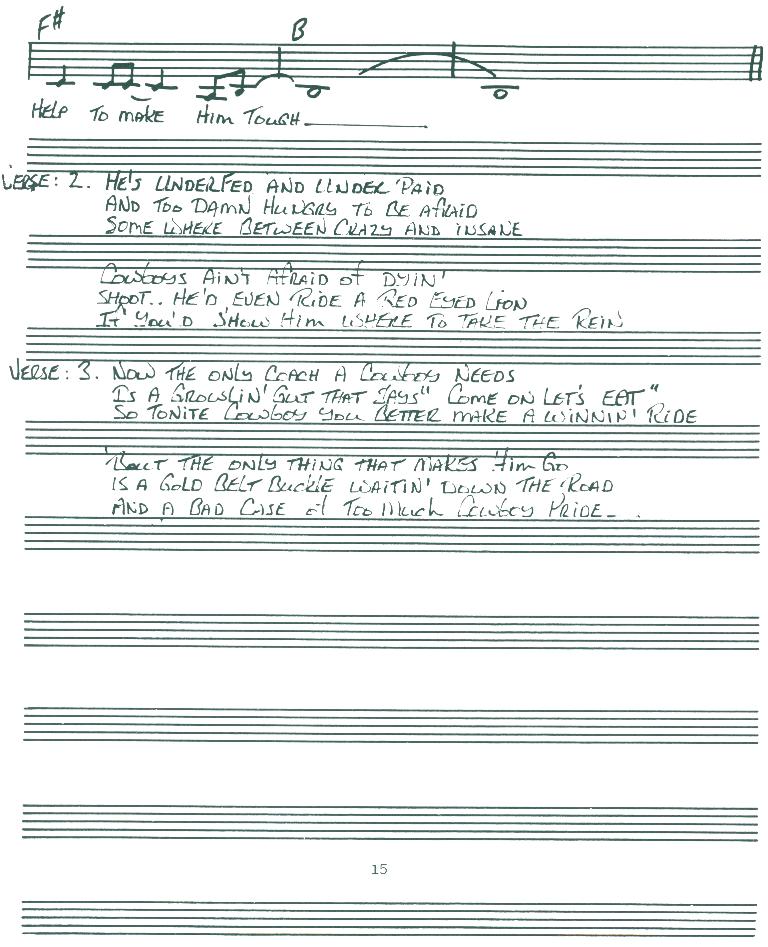 F# B
HELP TO MAKE HIM TOUGH
VERSE: 2. HE'S UNDERFED AND UNDER PAID
AND TOO DAMN HUNGRY TO BE AFRAID
SOME WHERE BETWEEN CRAZY AND INSANE
COWBOYS AIN'T AFRAID OF DYIN'
SHOOT.. HE'D EVEN RIDE A RED EYED LION
IF YOU'D SHOW HIM WHERE TO TAKE THE REIN
VERSE: 3. NOW THE ONLY COACH A COWBOY NEEDS
IS A GROWLIN' GUT THAT SAYS" COME ON LET'S EAT"
SO TONITE COWBOY YOU BETTER MAKE A WINNIN' RIDE
'BOUT THE ONLY THING THAT MAKES HIM GO
IS A GOLD BELT BUCKLE WAITIN' DOWN THE ROAD
AND A BAD CASE OF TOO MUCH COWBOY PRIDE
15